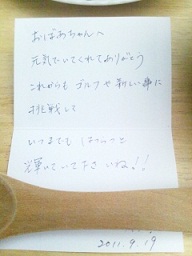 おばあちゃんへ
元気でいてくれてありがとう
これからも ゴルフや新しい事に
挑戦して
いつまでも はつらつと
輝いていて下さいね!!
2011.9.19